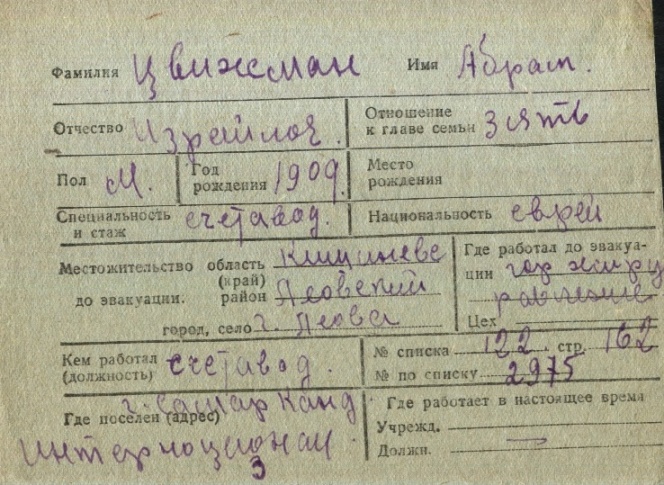 Фамилия Цвижман Имя Абрам.
Отчество Израйлоч. Отношение к главе семьи зять
Пол М. Год рождения 1909. Место рождения
Специальность и стаж счетавод. Национальность еврей
Местожительство область (край) Кишиневс
до эвакуации. район Леовский
город, село г. Леова
Где работал до эвакуации гор жилу
равление
Цех
Кем работал (должность) счетавод.
№ списка 122 стр. 162
№ по списку 2975
Где поселен (адрес) г. Самар Канд
Интернационал
3
Где работает в настоящее время
Учрежд.
Должн. —